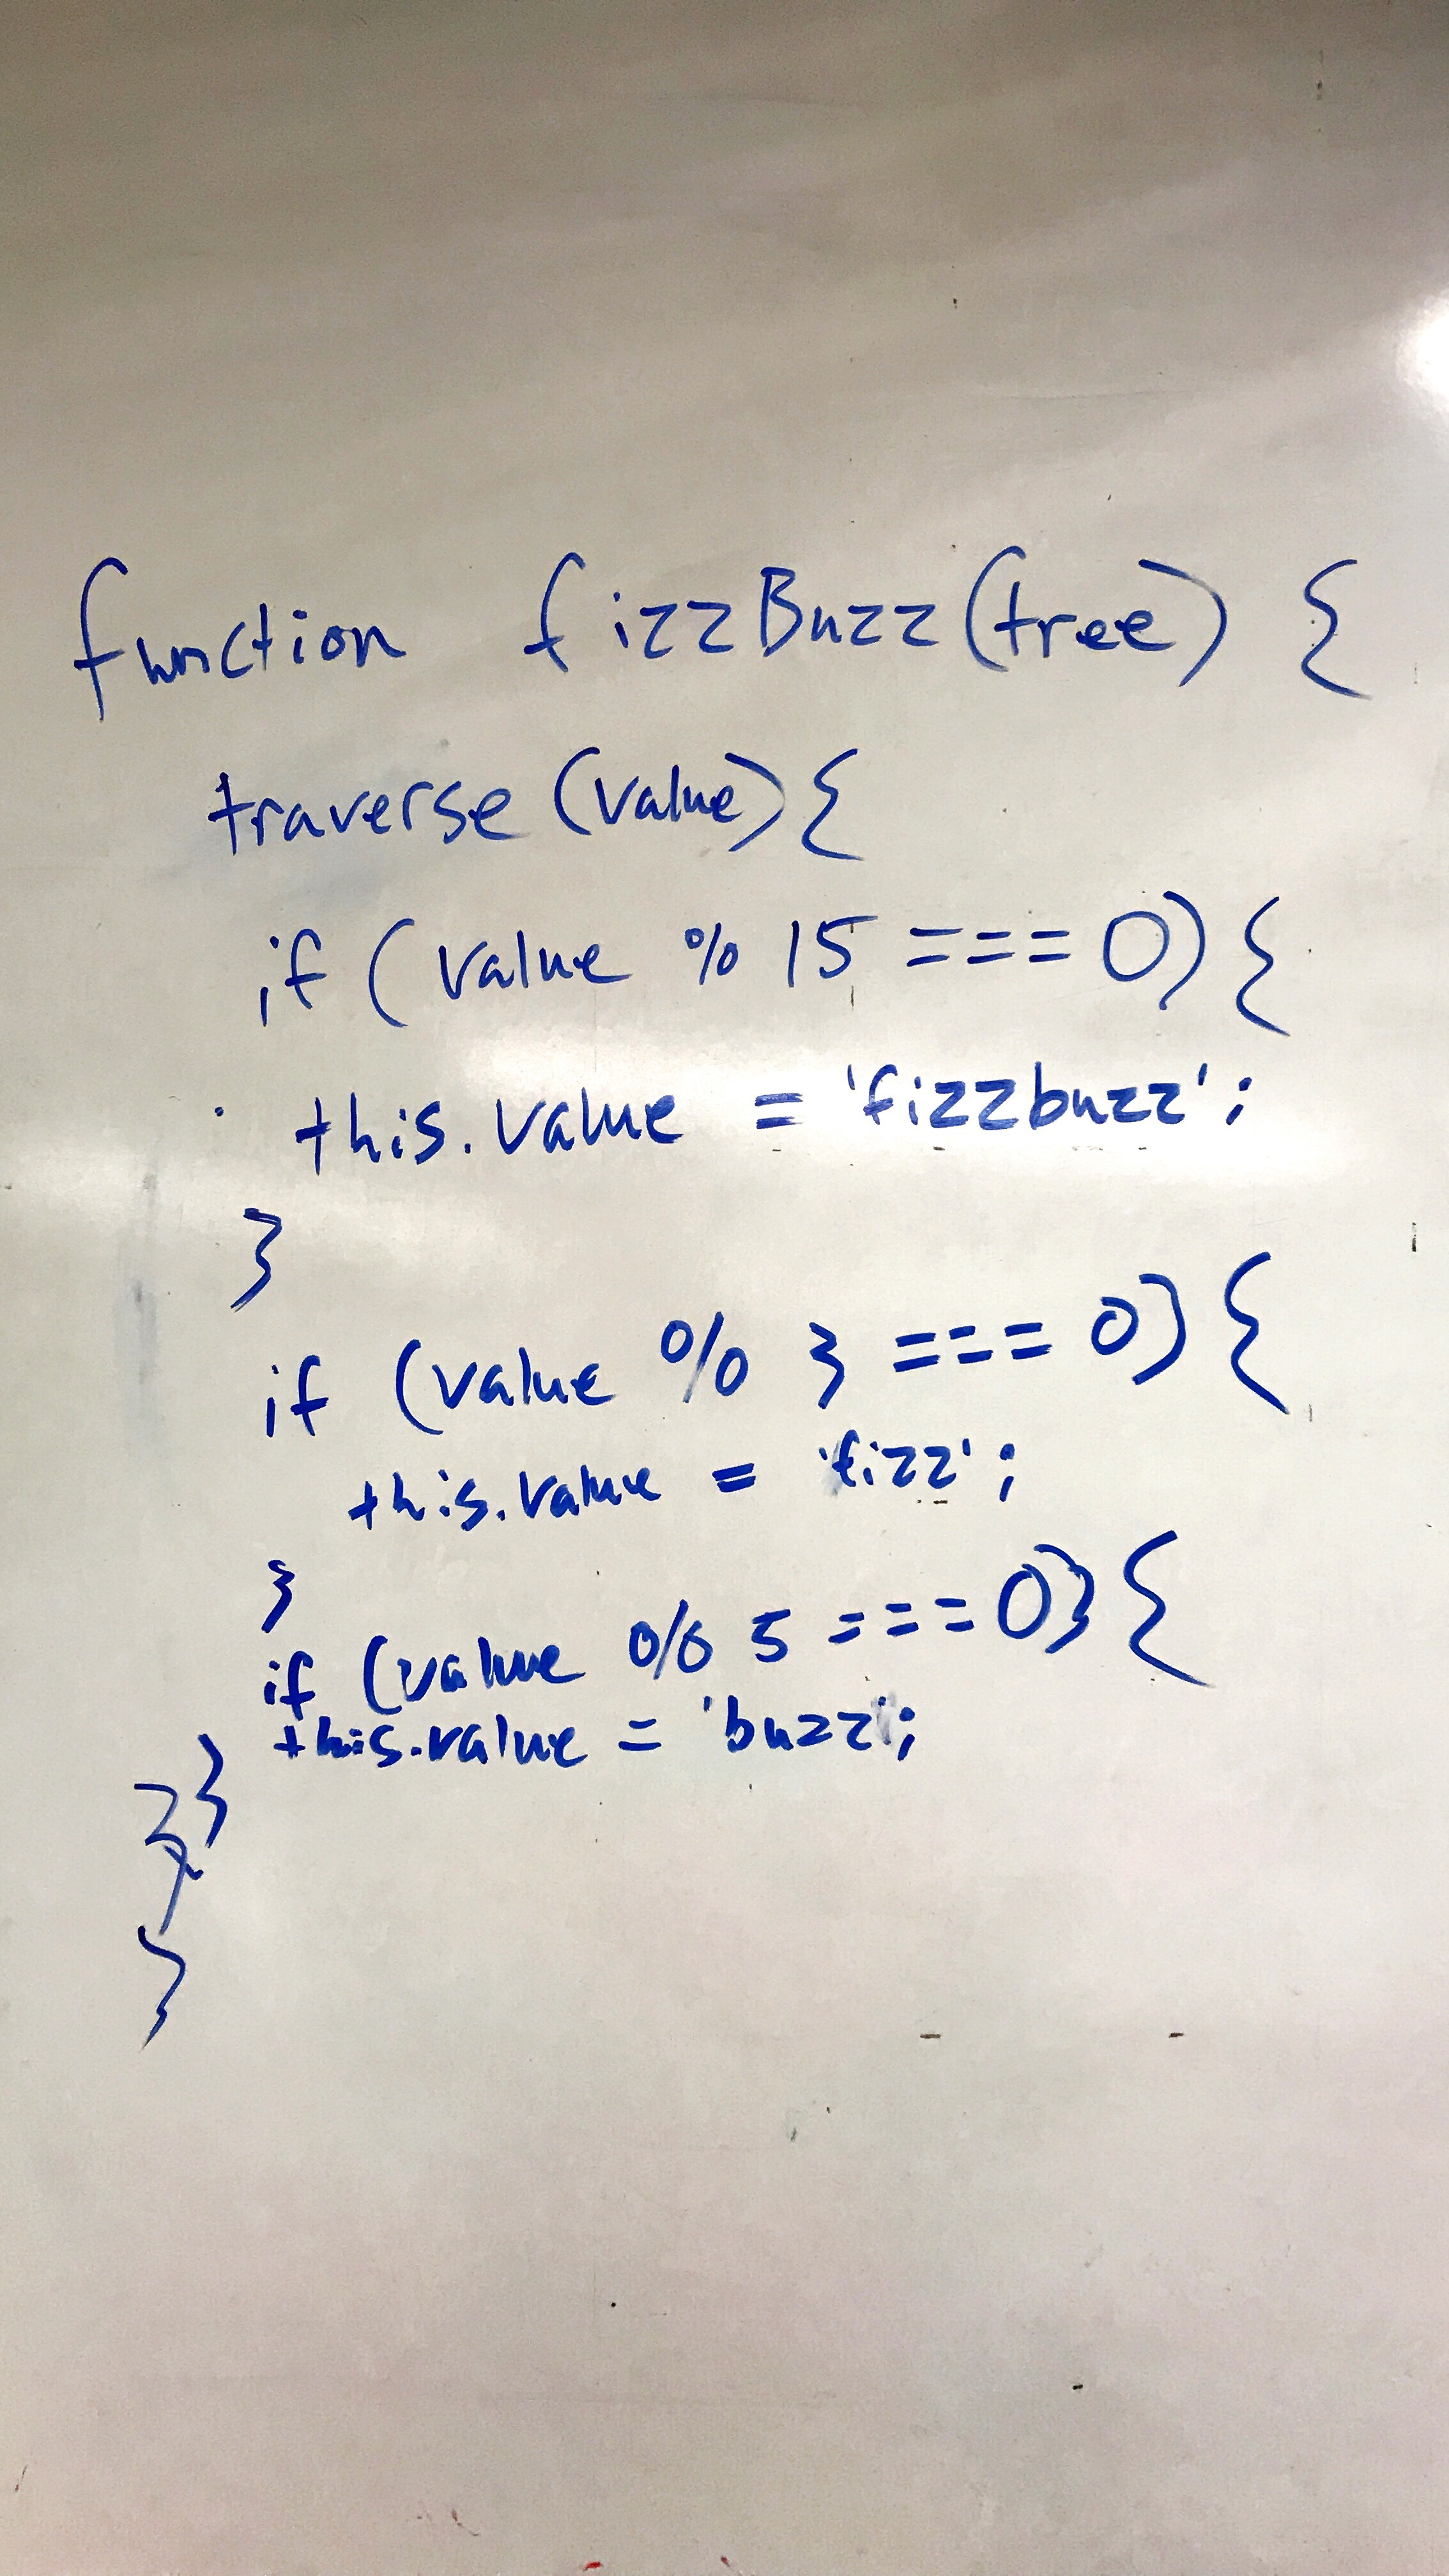 function fizzBuzz(tree) {
traverse (value) {
if ( value % 15 === 0) {
this.value = 'fizzbuzz';
}
if (value % 3 === 0) {
this.value = 'fizz';
}
if (value % 5 === 0) {
this.value = 'buzz';
}
}
}